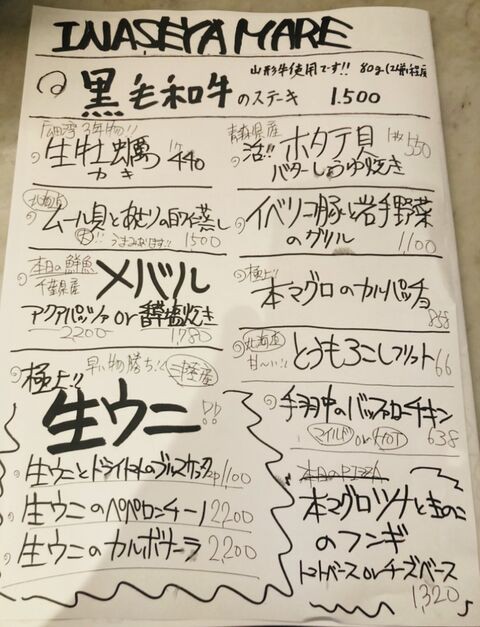 INASEYA MARE
黒毛和牛のステーキ
山形牛使用です!! 80g(2人前)程度
1.500
3年物!!
生牡蠣
かき
1ケ 440
青森県産
活!! ホタテ貝 1枚 550
バターしょうゆ焼き
北海道
ムール貝とあさりの白ワイン蒸し
大!! うまみあります!! 1500
イベリコ豚と岩手野菜
のグリル
1,100
本日の鮮魚
千葉県産
メバル
アクアパッツァ or 香草塩焼き
2,200 1,780
極上!!
本マグロのカルパッチョ
868
北海道
甘〜い!!
とうもろこしフリット 66
極上!!
早い物勝ち!!
三陸産
生ウニ!!
生ウニとドライトマトのブルスケッタ 2p1100
生ウニのペペロンチーノ 2200
生ウニのカルボナーラ 2,200
手羽中のバッファローチキン
マイルド or HOT 638
本日のPIZZA
本マグロツナときのこ
のフンギ
トマトベース or チーズベース
1,320